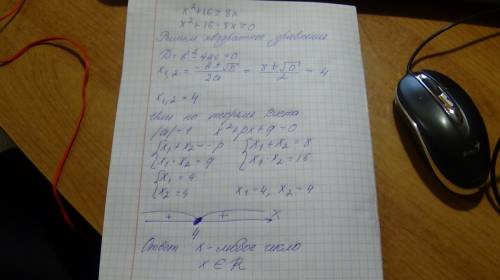 x²+16≥8x
x²+16-8x≥0
Решим квадратное уравнение
D=b²-4ac=0
x₁,₂ = (-b±√D)/2a = (8±√0)/2 = 4
x₁,₂=4
или по теореме Виета
x²+px+q=0
{x₁+x₂=-p {x₁+x₂=8
{x₁·x₂=q {x₁·x₂=16
{x₁=4
{x₂=4 x₁=4, x₂=4
+ + x
4
Ответ x-любое число
x∈R